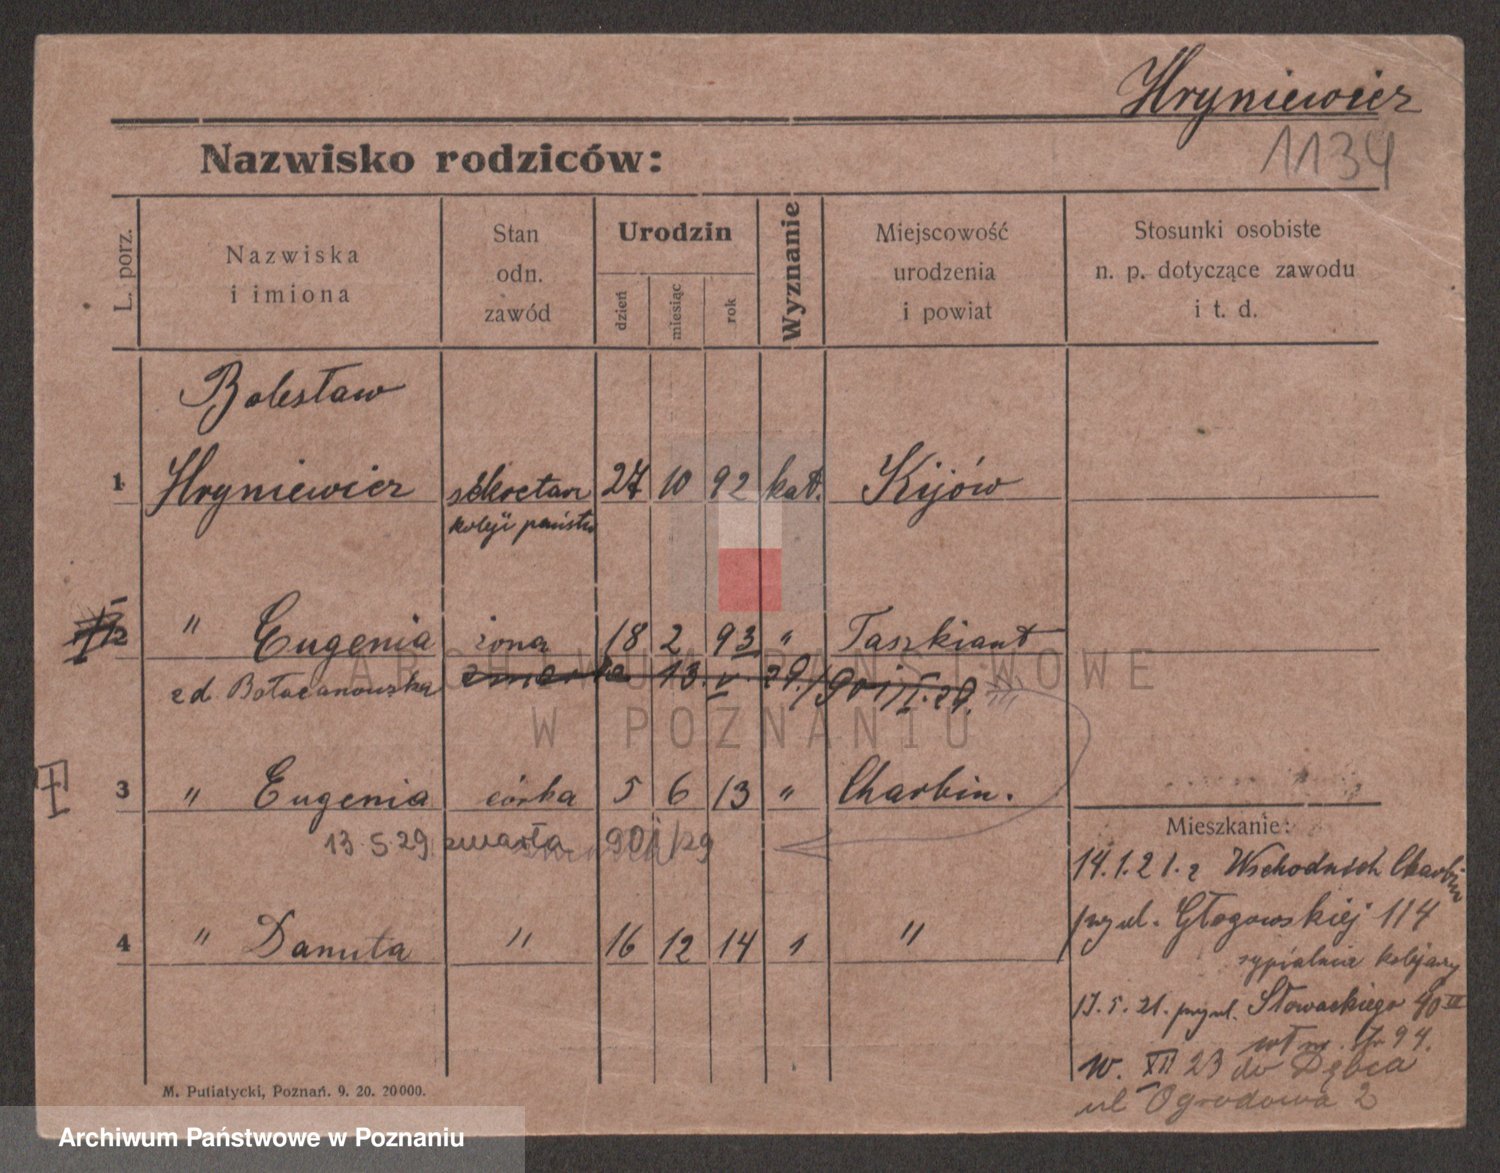 Hryniewicz
1134
Nazwisko rodziców:
L. porz.
Nazwiska
i imiona
Stan
odn.
zawód
Urodzin
dzień
miesiąc
rok
Wyznanie
Miejscowość
urodzenia
i powiat
Stosunki osobiste
n. p. dotyczące zawodu
i t. d.
Bolesław
1 Hryniewicz sekretarz 27 10 92 kat. Kijów
koleji państw
2 " Eugenia żona 18 2 93 " Taszkiant
zd. zmarła 13. V. 29./901/I.29.
ARCHIWUM PAŃSTWOWE
W POZNANIU
3 " Eugenia córka 5 6 13 " Charbin.
13.5.29 zmarła 901/29
4 " Danuta " 16 12 14 " "
Mieszkanie:
14.1.21. z Wschodnich Charbin
przy ul. Głogowskiej 114
sypialnia
17.5.21. przy ul. Słowackiego 40 III
94.
w. XII 23 do Dębca
ul Ogrodowa 2
M. Putiatycki, Poznań. 9. 20. 20000.
Archiwum Państwowe w Poznaniu